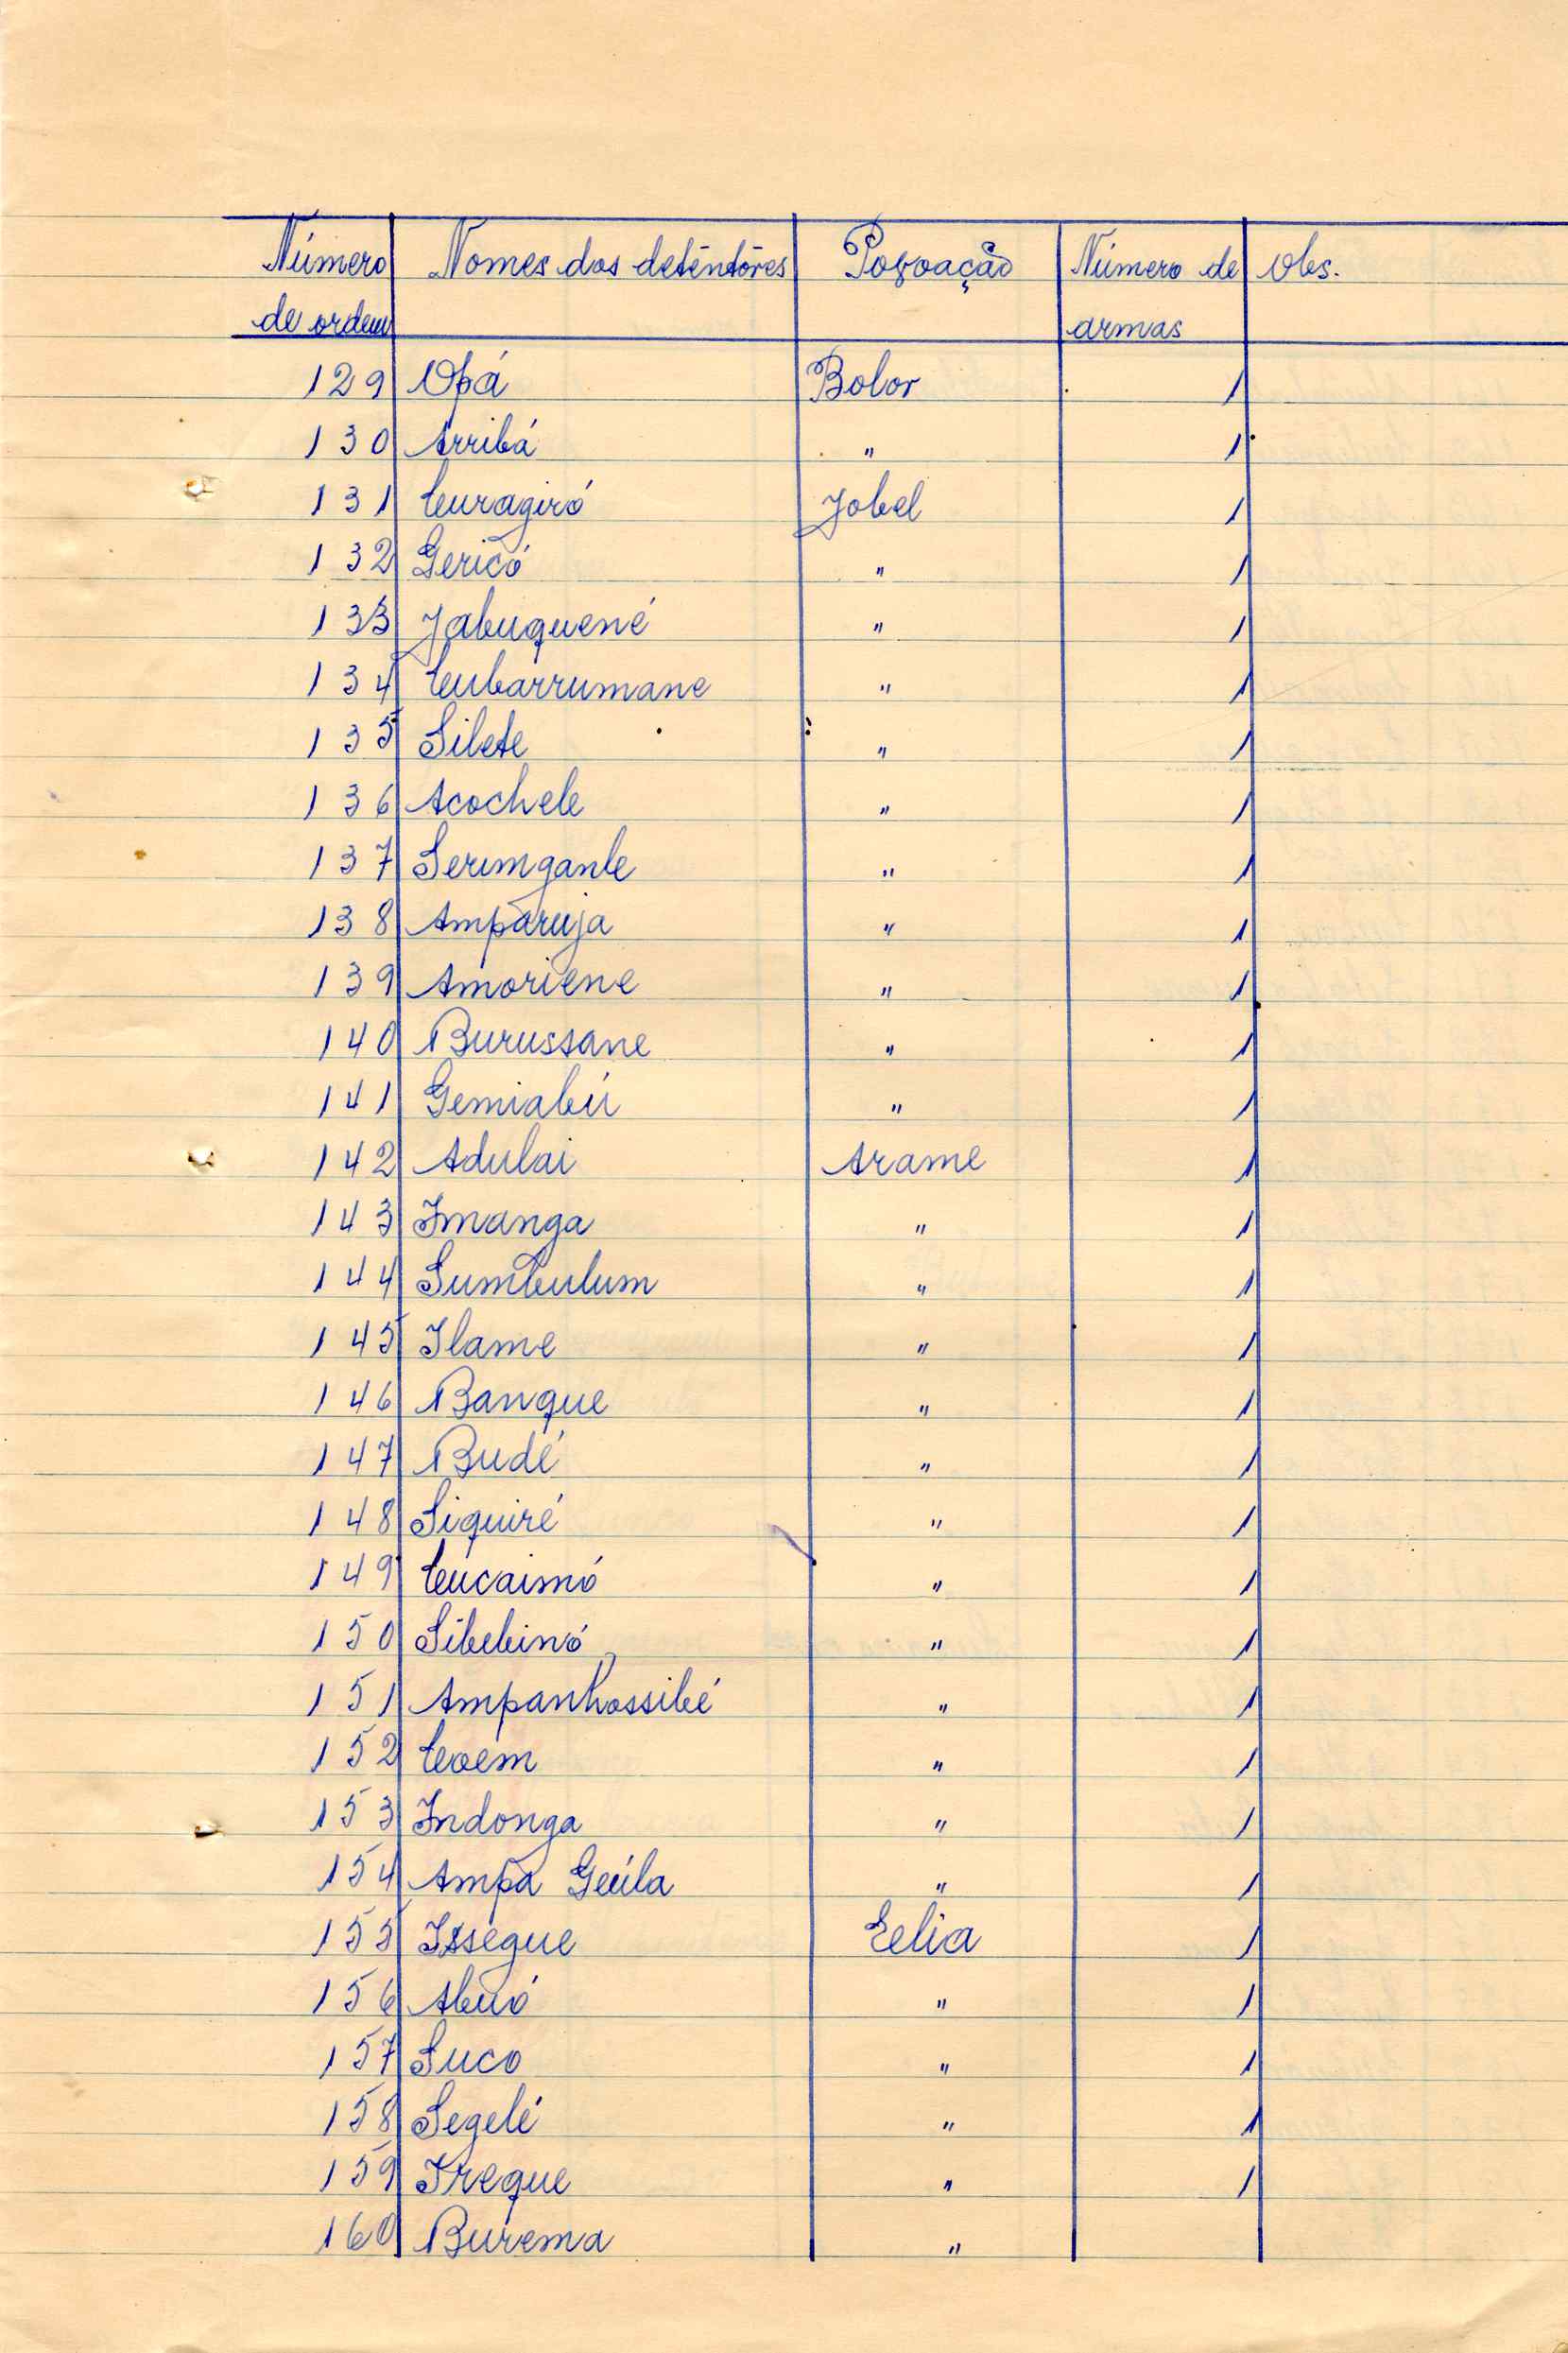 Número Nomes dos detentôres Povoação Número de Obs.
de ordem armas
129 Opá Bolor 1
130 Arribá " 1
131 Curagiró Jobel 1
132 Gericó " 1
133 Jabuquené " 1
134 Cubarrumane " 1
135 Silete " 1
136 Acochele " 1
137 Serimgante " 1
138 Amparuja " 1
139 Amoriene " 1
140 Burussane " 1
141 Gemiabú " 1
142 Adulai Arame 1
143 Imanga " 1
144 Sumbulum " 1
145 Ilame " 1
146 Banque " 1
147 Budé " 1
148 Siquiré " 1
149 Cucaimó " 1
150 Sibebinó " 1
151 Ampanhossibé " 1
152 Coem " 1
153 Indonga " 1
154 Ampa Geúla " 1
155 Issegue Eelia 1
156 Abuó " 1
157 Suco " 1
158 Segelé " 1
159 Ireque " 1
160 Burema "